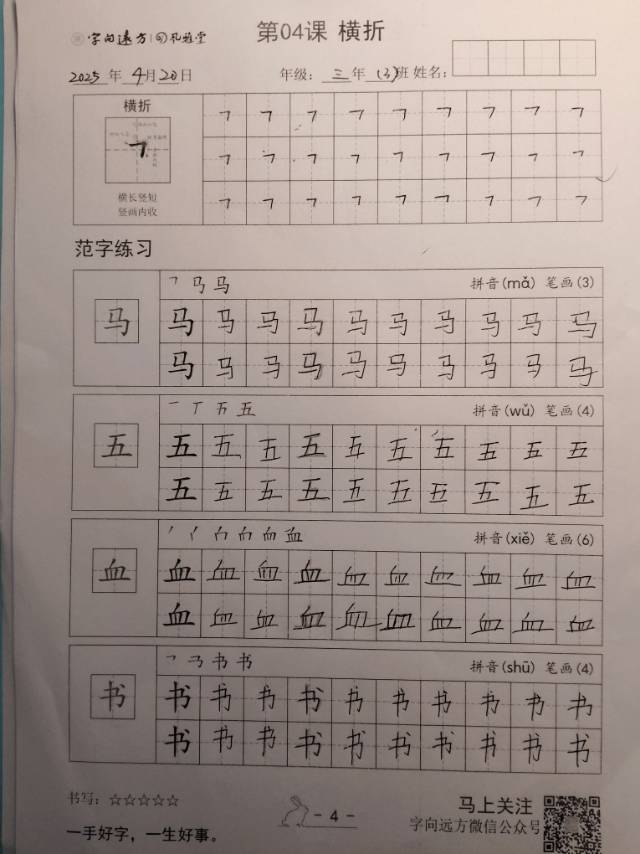 字向远方 孔雅堂 第04课 横折
2025年 4月20日 年级: 三年(3)班 姓名:
横折
横长竖短
竖画内收
𠃍 𠃍 𠃍 𠃍 𠃍 𠃍 𠃍 𠃍 𠃍
𠃍 𠃍 𠃍 𠃍 𠃍 𠃍 𠃍 𠃍 𠃍
𠃍 𠃍 𠃍 𠃍 𠃍 𠃍 𠃍 𠃍 𠃍
范字练习
马 拼音(mǎ) 笔画(3)
马 马 马 马 马 马 马 马 马 马 马
马 马 马 马 马 马 马 马 马 马
五 拼音(wǔ) 笔画(4)
五 五 五 五 五 五 五 五 五 五 五
五 五 五 五 五 五 五 五 五 五
血 拼音(xiě) 笔画(6)
血 血 血 血 血 血 血 血 血 血 血
血 血 血 血 血 血 血 血 血 血
书 拼音(shū) 笔画(4)
书 书 书 书 书 书 书 书 书 书 书
书 书 书 书 书 书 书 书 书 书
书写: ☆☆☆☆☆
一手好字，一生好事。
- 4 -
马上关注
字向远方微信公众号